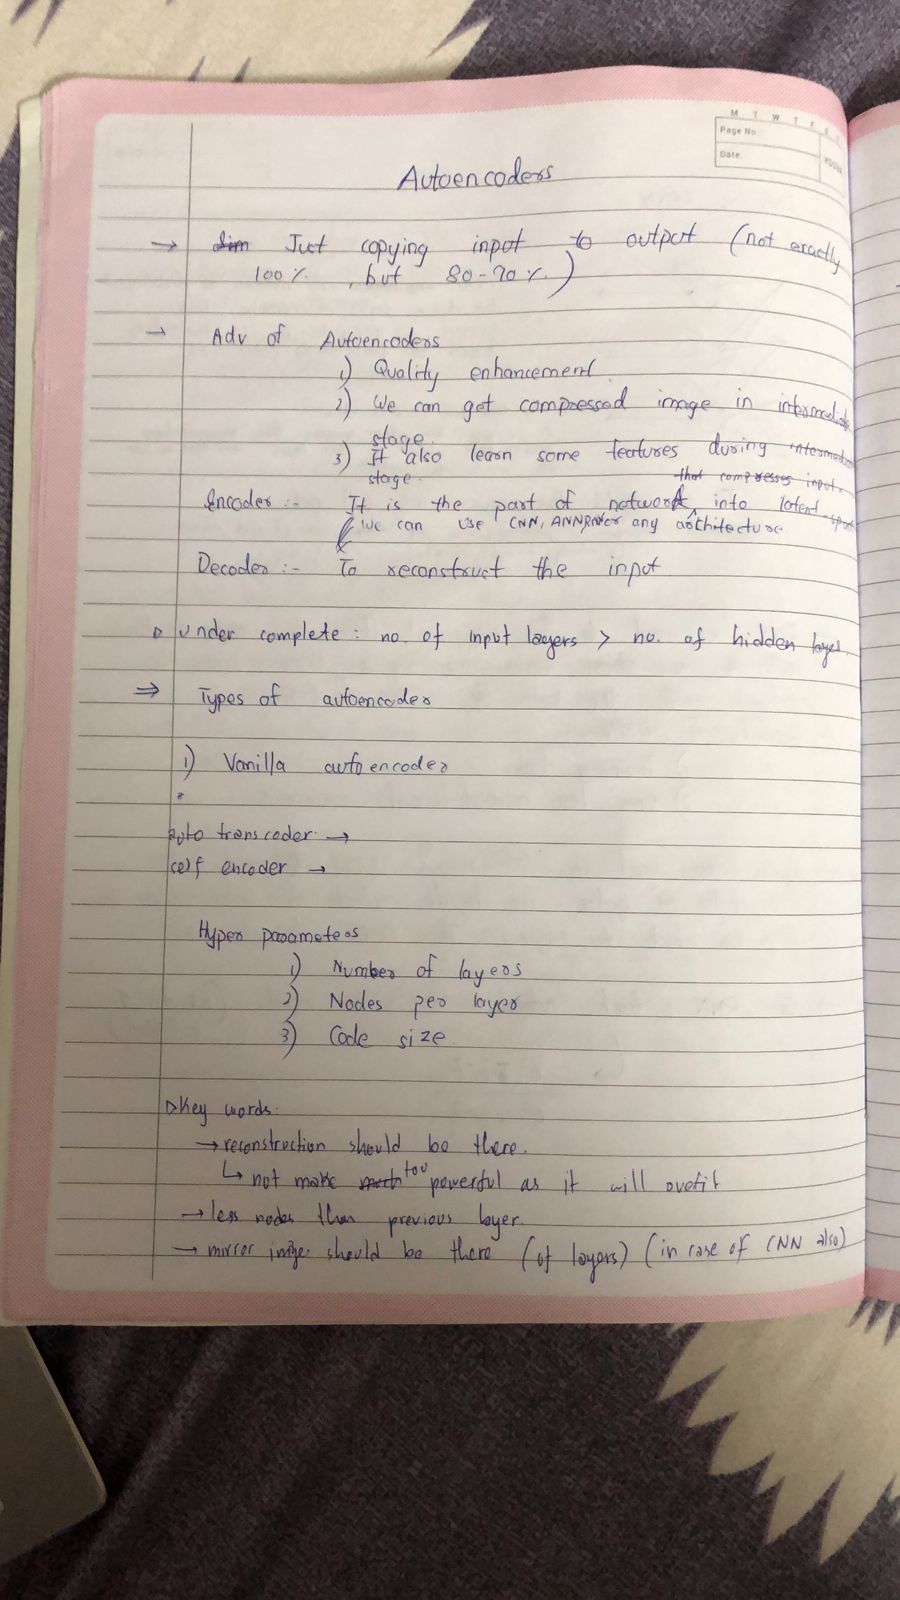 M T W T F S S
Page No
Date
YOUVA
Autoencoders
→ Just copying input to output (not exactly
100% , but 80-90%)
→ Adv of Autoencoders
1) Quality enhancement
2) We can get compressed image in intermediate
stage.
3) It also learn some features during intermediate
stage.
that compresses input
Encoder :- It is the part of network ^ into latent space
We can use CNN, ANN, or any architecture.
Decoder :- To reconstruct the input
▷ Under complete : no. of input layers > no. of hidden layer.
⇒ Types of autoencoder
1) Vanilla autoencoder
auto transcoder →
self encoder →
Hyper parameters
1) Number of layers
2) Nodes per layer
3) Code size
▷ Key words:
→ reconstruction should be there.
↳ not make too powerful as it will ovefit
→ less nodes than previous layer.
→ mirror image should be there (of layers) (in case of CNN also)